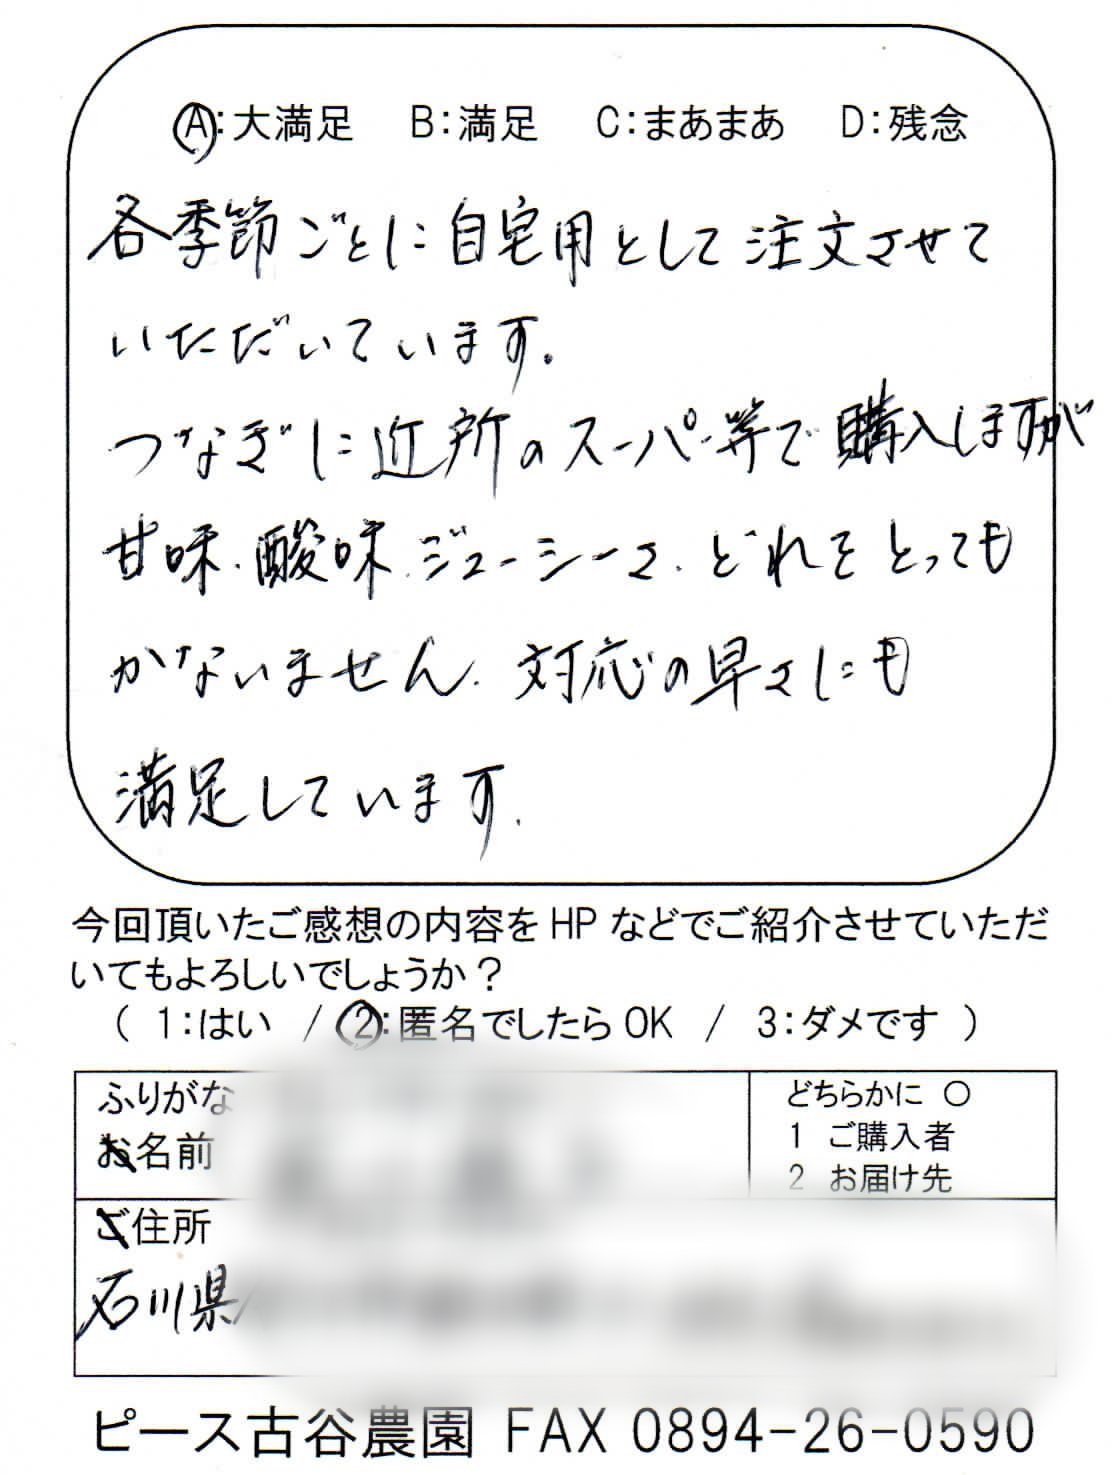 A:大満足 B:満足 C:まあまあ D:残念
各季節ごとに自宅用として注文させて
いただいています。
つなぎに近所のスーパー等で購入しますが
甘味、酸味、ジューシーさ、どれをとっても
かないません。対応の早さにも
満足しています。
今回頂いたご感想の内容をHPなどでご紹介させていただ
いてもよろしいでしょうか？
( 1:はい / 2:匿名でしたらOK / 3:ダメです )
ふりがな
お名前
どちらかに ○
1 ご購入者
2 お届け先
ご住所
石川県
ピース古谷農園 FAX 0894-26-0590